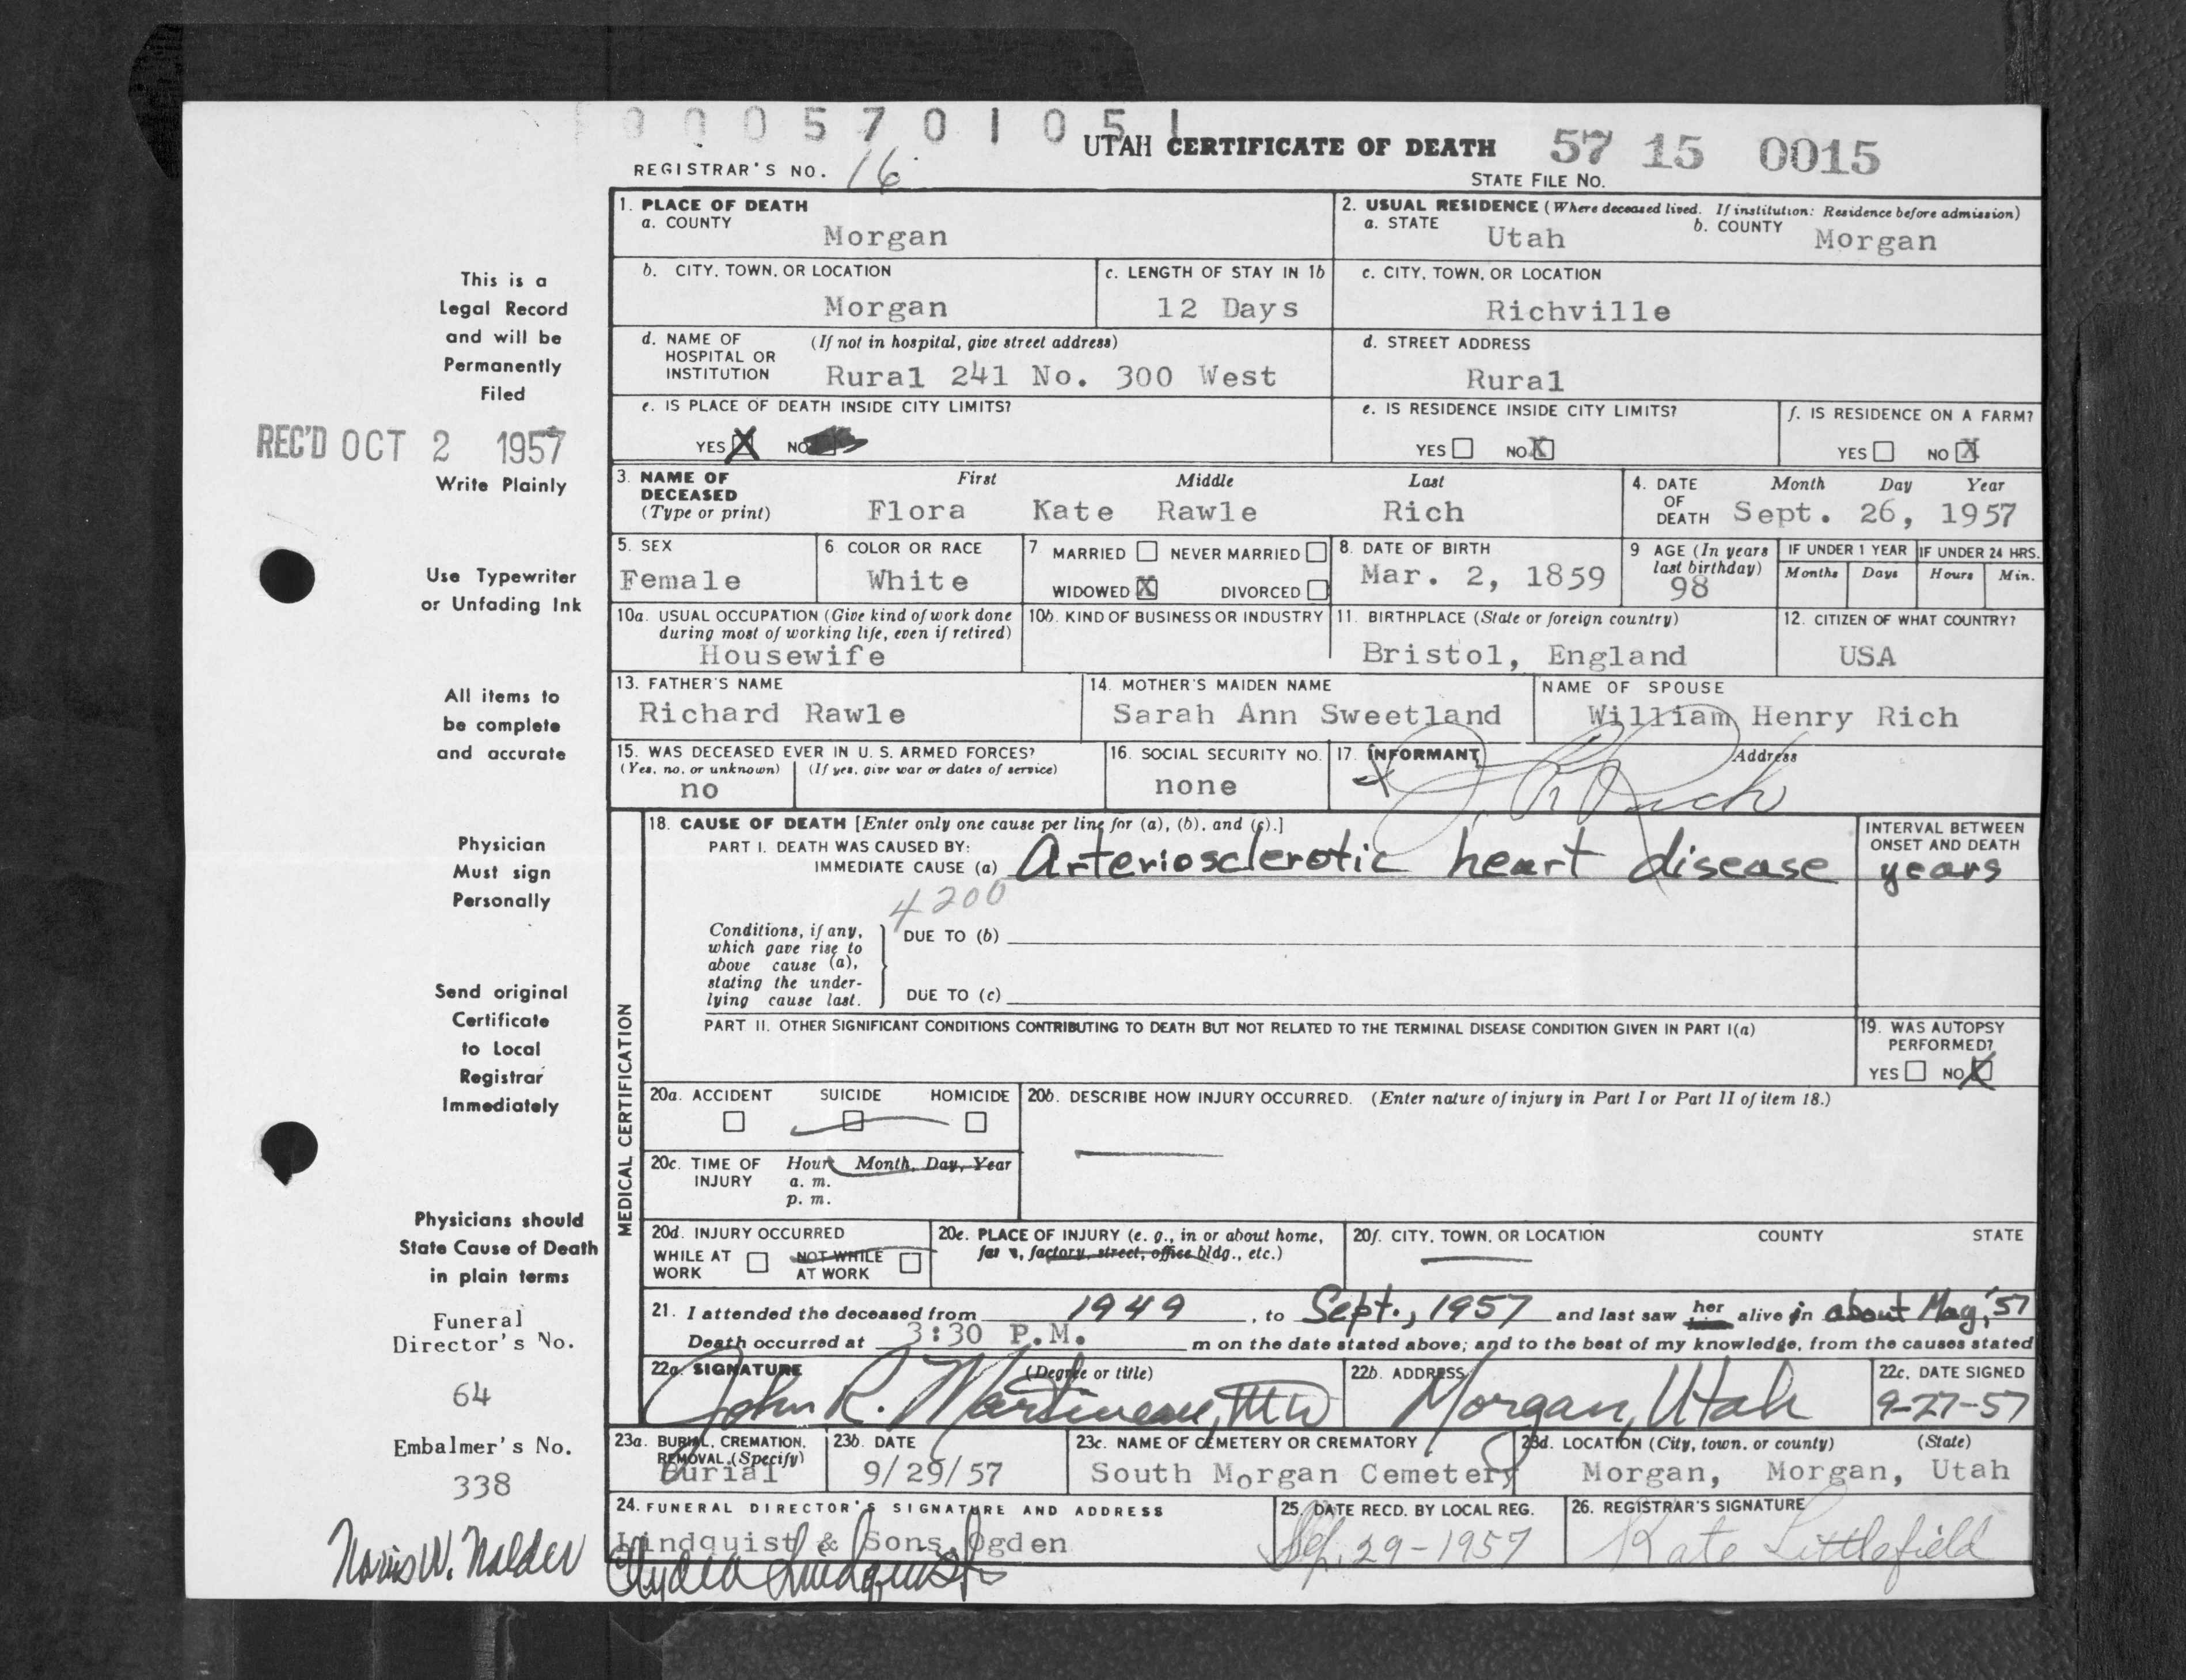 0 0 0 5 7 0 1 0 5 1
UTAH CERTIFICATE OF DEATH 57 15 0015
REGISTRAR'S NO. 16
STATE FILE NO.
This is a
Legal Record
and will be
Permanently
Filed
REC'D OCT 2 1957
Write Plainly
Use Typewriter
or Unfading Ink
All items to
be complete
and accurate
Physician
Must sign
Personally
Send original
Certificate
to Local
Registrar
Immediately
Physicians should
State Cause of Death
in plain terms
Funeral
Director's No.
64
Embalmer's No.
338
Norris W. Nalder
1. PLACE OF DEATH
a. COUNTY
Morgan
2. USUAL RESIDENCE (Where deceased lived. If institution: Residence before admission)
a. STATE Utah b. COUNTY Morgan
b. CITY, TOWN, OR LOCATION
Morgan
c. LENGTH OF STAY IN 1b
12 Days
c. CITY, TOWN, OR LOCATION
Richville
d. NAME OF HOSPITAL OR INSTITUTION (If not in hospital, give street address)
Rural 241 No. 300 West
d. STREET ADDRESS
Rural
e. IS PLACE OF DEATH INSIDE CITY LIMITS?
YES X NO
e. IS RESIDENCE INSIDE CITY LIMITS?
YES NO X
f. IS RESIDENCE ON A FARM?
YES NO X
3. NAME OF DECEASED (Type or print) First Middle Last
Flora Kate Rawle Rich
4. DATE OF DEATH Month Day Year
Sept. 26, 1957
5. SEX
Female
6. COLOR OR RACE
White
7 MARRIED NEVER MARRIED
WIDOWED X DIVORCED
8. DATE OF BIRTH
Mar. 2, 1859
9 AGE (In years last birthday)
98
IF UNDER 1 YEAR
Months Days
IF UNDER 24 HRS.
Hours Min.
10a. USUAL OCCUPATION (Give kind of work done during most of working life, even if retired)
Housewife
10b. KIND OF BUSINESS OR INDUSTRY
11. BIRTHPLACE (State or foreign country)
Bristol, England
12. CITIZEN OF WHAT COUNTRY?
USA
13. FATHER'S NAME
Richard Rawle
14. MOTHER'S MAIDEN NAME
Sarah Ann Sweetland
NAME OF SPOUSE
William Henry Rich
15. WAS DECEASED EVER IN U. S. ARMED FORCES?
(Yes, no, or unknown) (If yes, give war or dates of service)
no
16. SOCIAL SECURITY NO.
none
17. INFORMANT Address
Rich
MEDICAL CERTIFICATION
18. CAUSE OF DEATH [Enter only one cause per line for (a), (b), and (c).]
PART I. DEATH WAS CAUSED BY:
IMMEDIATE CAUSE (a) Arteriosclerotic heart disease
INTERVAL BETWEEN ONSET AND DEATH
years
4200
Conditions, if any, which gave rise to above cause (a), stating the underlying cause last.
DUE TO (b)
DUE TO (c)
PART II. OTHER SIGNIFICANT CONDITIONS CONTRIBUTING TO DEATH BUT NOT RELATED TO THE TERMINAL DISEASE CONDITION GIVEN IN PART I(a)
19. WAS AUTOPSY PERFORMED?
YES NO X
20a. ACCIDENT SUICIDE HOMICIDE
20b. DESCRIBE HOW INJURY OCCURRED. (Enter nature of injury in Part I or Part II of item 18.)
20c. TIME OF INJURY Hour Month, Day, Year
a. m.
p. m.
20d. INJURY OCCURRED
WHILE AT WORK NOT WHILE AT WORK
20e. PLACE OF INJURY (e. g., in or about home, farm, factory, street, office bldg., etc.)
20f. CITY, TOWN, OR LOCATION COUNTY STATE
21. I attended the deceased from 1949, to Sept., 1957 and last saw her alive in about May, '57
Death occurred at 3:30 P.M. m on the date stated above; and to the best of my knowledge, from the causes stated
22a. SIGNATURE (Degree or title)
John R. Martineau, MD
22b. ADDRESS
Morgan, Utah
22c. DATE SIGNED
9-27-57
23a. BURIAL, CREMATION, REMOVAL (Specify)
Burial
23b. DATE
9/29/57
23c. NAME OF CEMETERY OR CREMATORY
South Morgan Cemetery
23d. LOCATION (City, town, or county) (State)
Morgan, Morgan, Utah
24. FUNERAL DIRECTOR'S SIGNATURE AND ADDRESS
Lindquist & Sons, Ogden
25. DATE RECD. BY LOCAL REG.
Sep. 29-1957
26. REGISTRAR'S SIGNATURE
Kate Littlefield
Lindquist